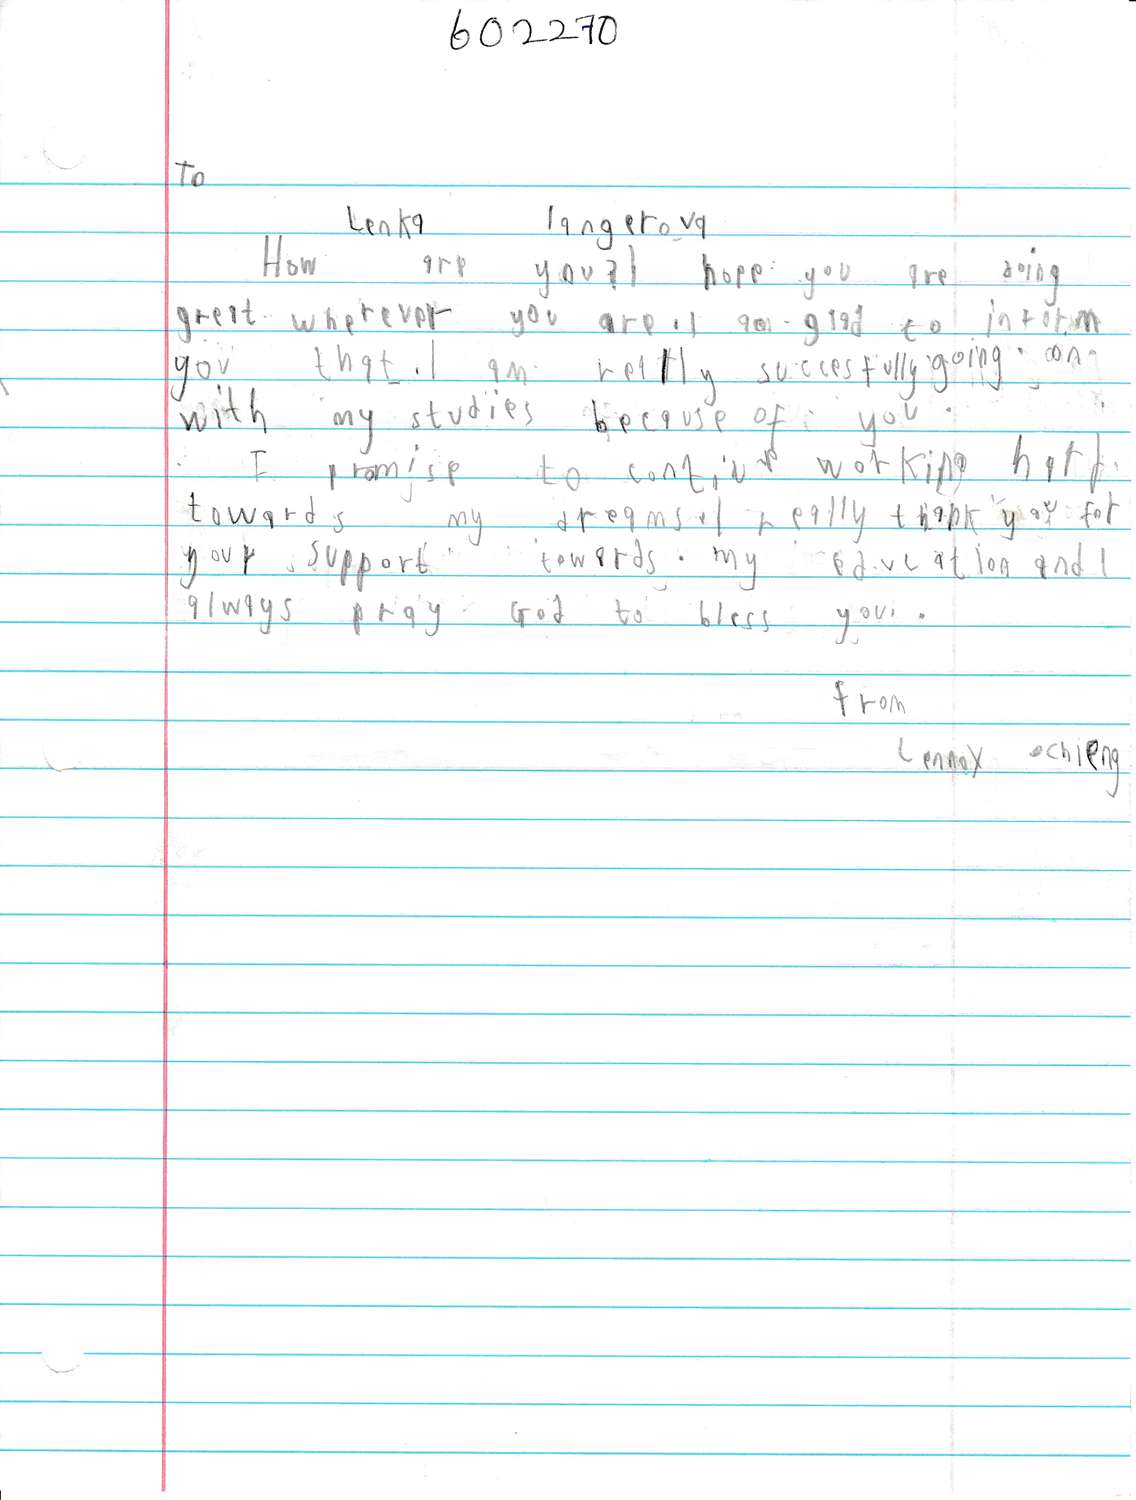 602270
To
Lenka langerova
How are you? I hope you are doing
great wherever you are. I am glad to inform
you that. I am really succesfully going
with my studies because of you.
I promise to working hard
towards my dreams. I really thank you for
your support towards my education and I
always pray God to bless you.
from
Lennox ochieng